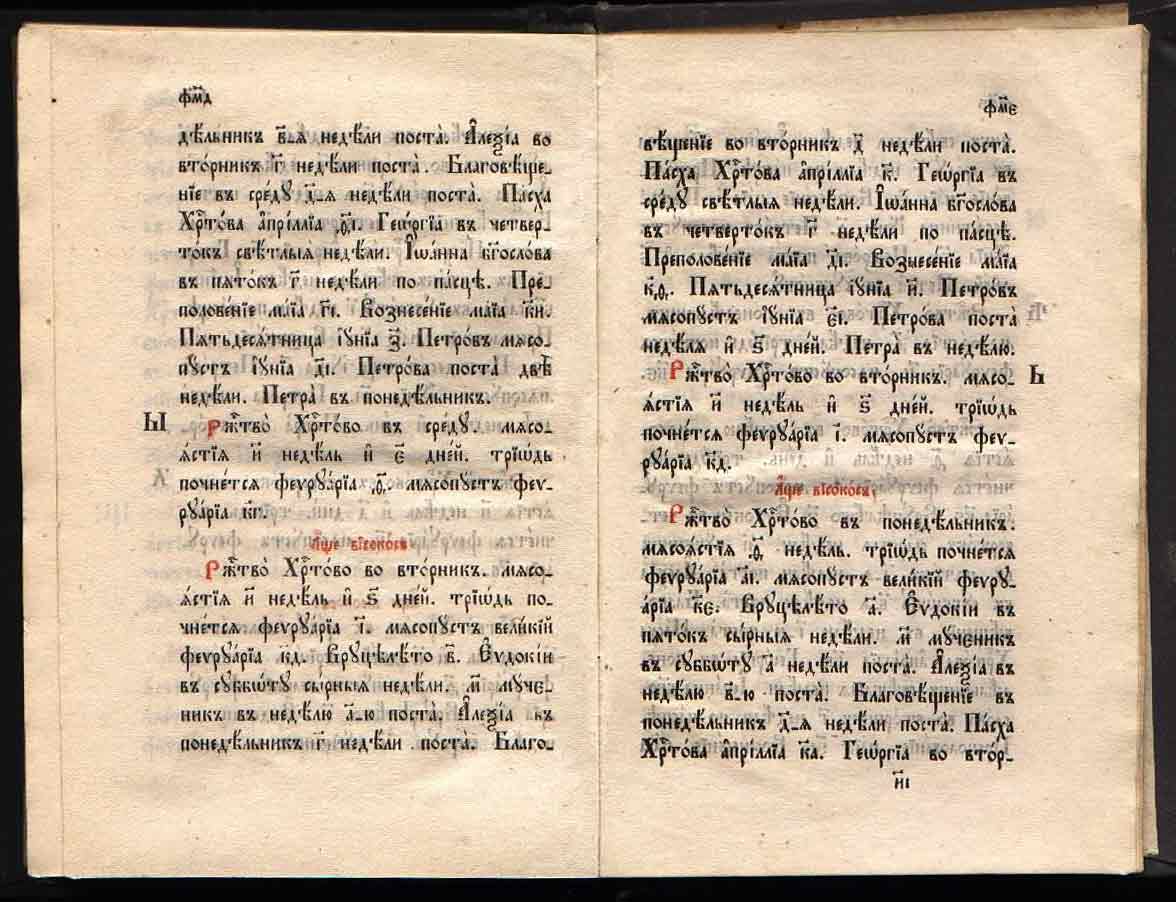 фм҃д
дѣ́льникъ в҃-ѧ недѣ́ли поста̀. А҆леѯі́а во
вто́рникъ г҃ недѣ́ли поста̀. Благовѣ́ще-
нїе въ сре́дꙋ д҃-ѧ недѣ́ли поста̀. Па́сха
Хрⷭ҇то́ва а҆прі́ллїа ѳ҃і. Геѡ́ргїа въ четвер-
то́къ свѣ́тлыѧ недѣ́ли. І҆ѡа́нна бг҃осло́ва
въ пѧто́къ г҃ недѣ́ли по па́сцѣ. Пре-
полове́нїе ма́їа г҃і. Вознесе́нїе ма́їа к҃и.
Пѧтьдесѧ́тница і҆ꙋ́нїа з҃. Петро́въ мѧсо-
пꙋ́стъ і҆ꙋ́нїа д҃і. Петро́ва поста̀ двѣ̀
недѣ́ли. Петра̀ въ понедѣ́льникъ.
Ы
Рⷤ҇тво̀ Хрⷭ҇то́во въ сре́дꙋ. мѧсо-
ѧ́стїѧ и҃ недѣ́ль и҆ є҃ дне́й. трїѡ́дь
почне́тсѧ феѵрꙋа́рїа ѳ҃. мѧсопꙋ́стъ феѵ-
рꙋа́рїа к҃г.
А҆́ще ви́сокосъ
Рⷤ҇тво̀ Хрⷭ҇то́во во вто́рникъ. мѧсо-
ѧ́стїѧ и҃ недѣ́ль и҆ ѕ҃ дне́й. трїѡ́дь по-
чне́тсѧ феѵрꙋа́рїа і҃. мѧсопꙋ́стъ вели́кїй
феѵрꙋа́рїа к҃д. Врꙋцѣлѣ́то в҃. Е҆ѵдокі́и
въ сꙋббѡ́тꙋ сы́рныѧ недѣ́ли. м҃ мꙋ́че-
никъ въ недѣ́лю а҃-ю поста̀. А҆леѯі́а въ
понедѣ́льникъ г҃ недѣ́ли поста̀. Благо-
фм҃є
вѣ́щенїе во вто́рникъ д҃ недѣ́ли поста̀.
Па́сха Хрⷭ҇то́ва а҆прі́ллїа к҃. Геѡ́ргїа въ
сре́дꙋ свѣ́тлыѧ недѣ́ли. І҆ѡа́нна бг҃осло́ва
въ четверто́къ г҃ недѣ́ли по па́сцѣ.
Преполове́нїе ма́їа д҃і. Вознесе́нїе ма́їа
к҃ѳ. Пѧтьдесѧ́тница і҆ꙋ́нїа и҃. Петро́въ
мѧсопꙋ́стъ і҆ꙋ́нїа є҃і. Петро́ва поста̀
недѣ́лѧ и҆ ѕ҃ дне́й. Петра̀ въ недѣ́лю.
Ь
Рⷤ҇тво̀ Хрⷭ҇то́во во вто́рникъ. мѧсо-
ѧ́стїѧ и҃ недѣ́ль и҆ ѕ҃ дне́й. трїѡ́дь
почне́тсѧ феѵрꙋа́рїа і҃. мѧсопꙋ́стъ феѵ-
рꙋа́рїа к҃д.
А҆́ще ви́сокосъ,
Рⷤ҇тво̀ Хрⷭ҇то́во въ понедѣ́льникъ.
мѧсоѧ́стїѧ ѳ҃ недѣ́ль. трїѡ́дь почне́тсѧ
феѵрꙋа́рїа а҃і. мѧсопꙋ́стъ вели́кїй феѵрꙋ-
а́рїа к҃є. Врꙋцѣлѣ́то а҃. Е҆ѵдокі́и въ
пѧто́къ сы́рныѧ недѣ́ли. м҃ мꙋ́ченикъ
въ сꙋббѡ́тꙋ а҃ недѣ́ли поста̀. А҆леѯі́а въ
недѣ́лю в҃-ю поста̀. Благовѣ́щенїе въ
понедѣ́льникъ д҃-ѧ недѣ́ли поста̀. Па́сха
Хрⷭ҇то́ва а҆прі́ллїа к҃а. Геѡ́ргїа во вто́р-
и҃і